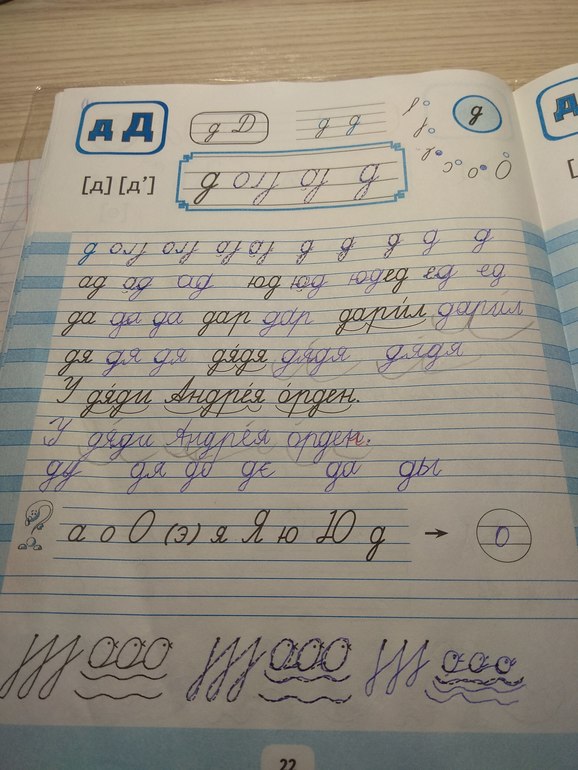 д Д
д Д
д д
д
[д] [д']
д д
д д д д д
ад ад ад юд юд юд ед ед ед
да да да дар дар дари́л дари́л
дя дя дя дя́дя дя́дя дядя
У дя́ди Андре́я о́рден.
У дя́ди Андре́я о́рден.
ду дя до де да ды
?
а о О (э) я Я ю Ю д → о
22